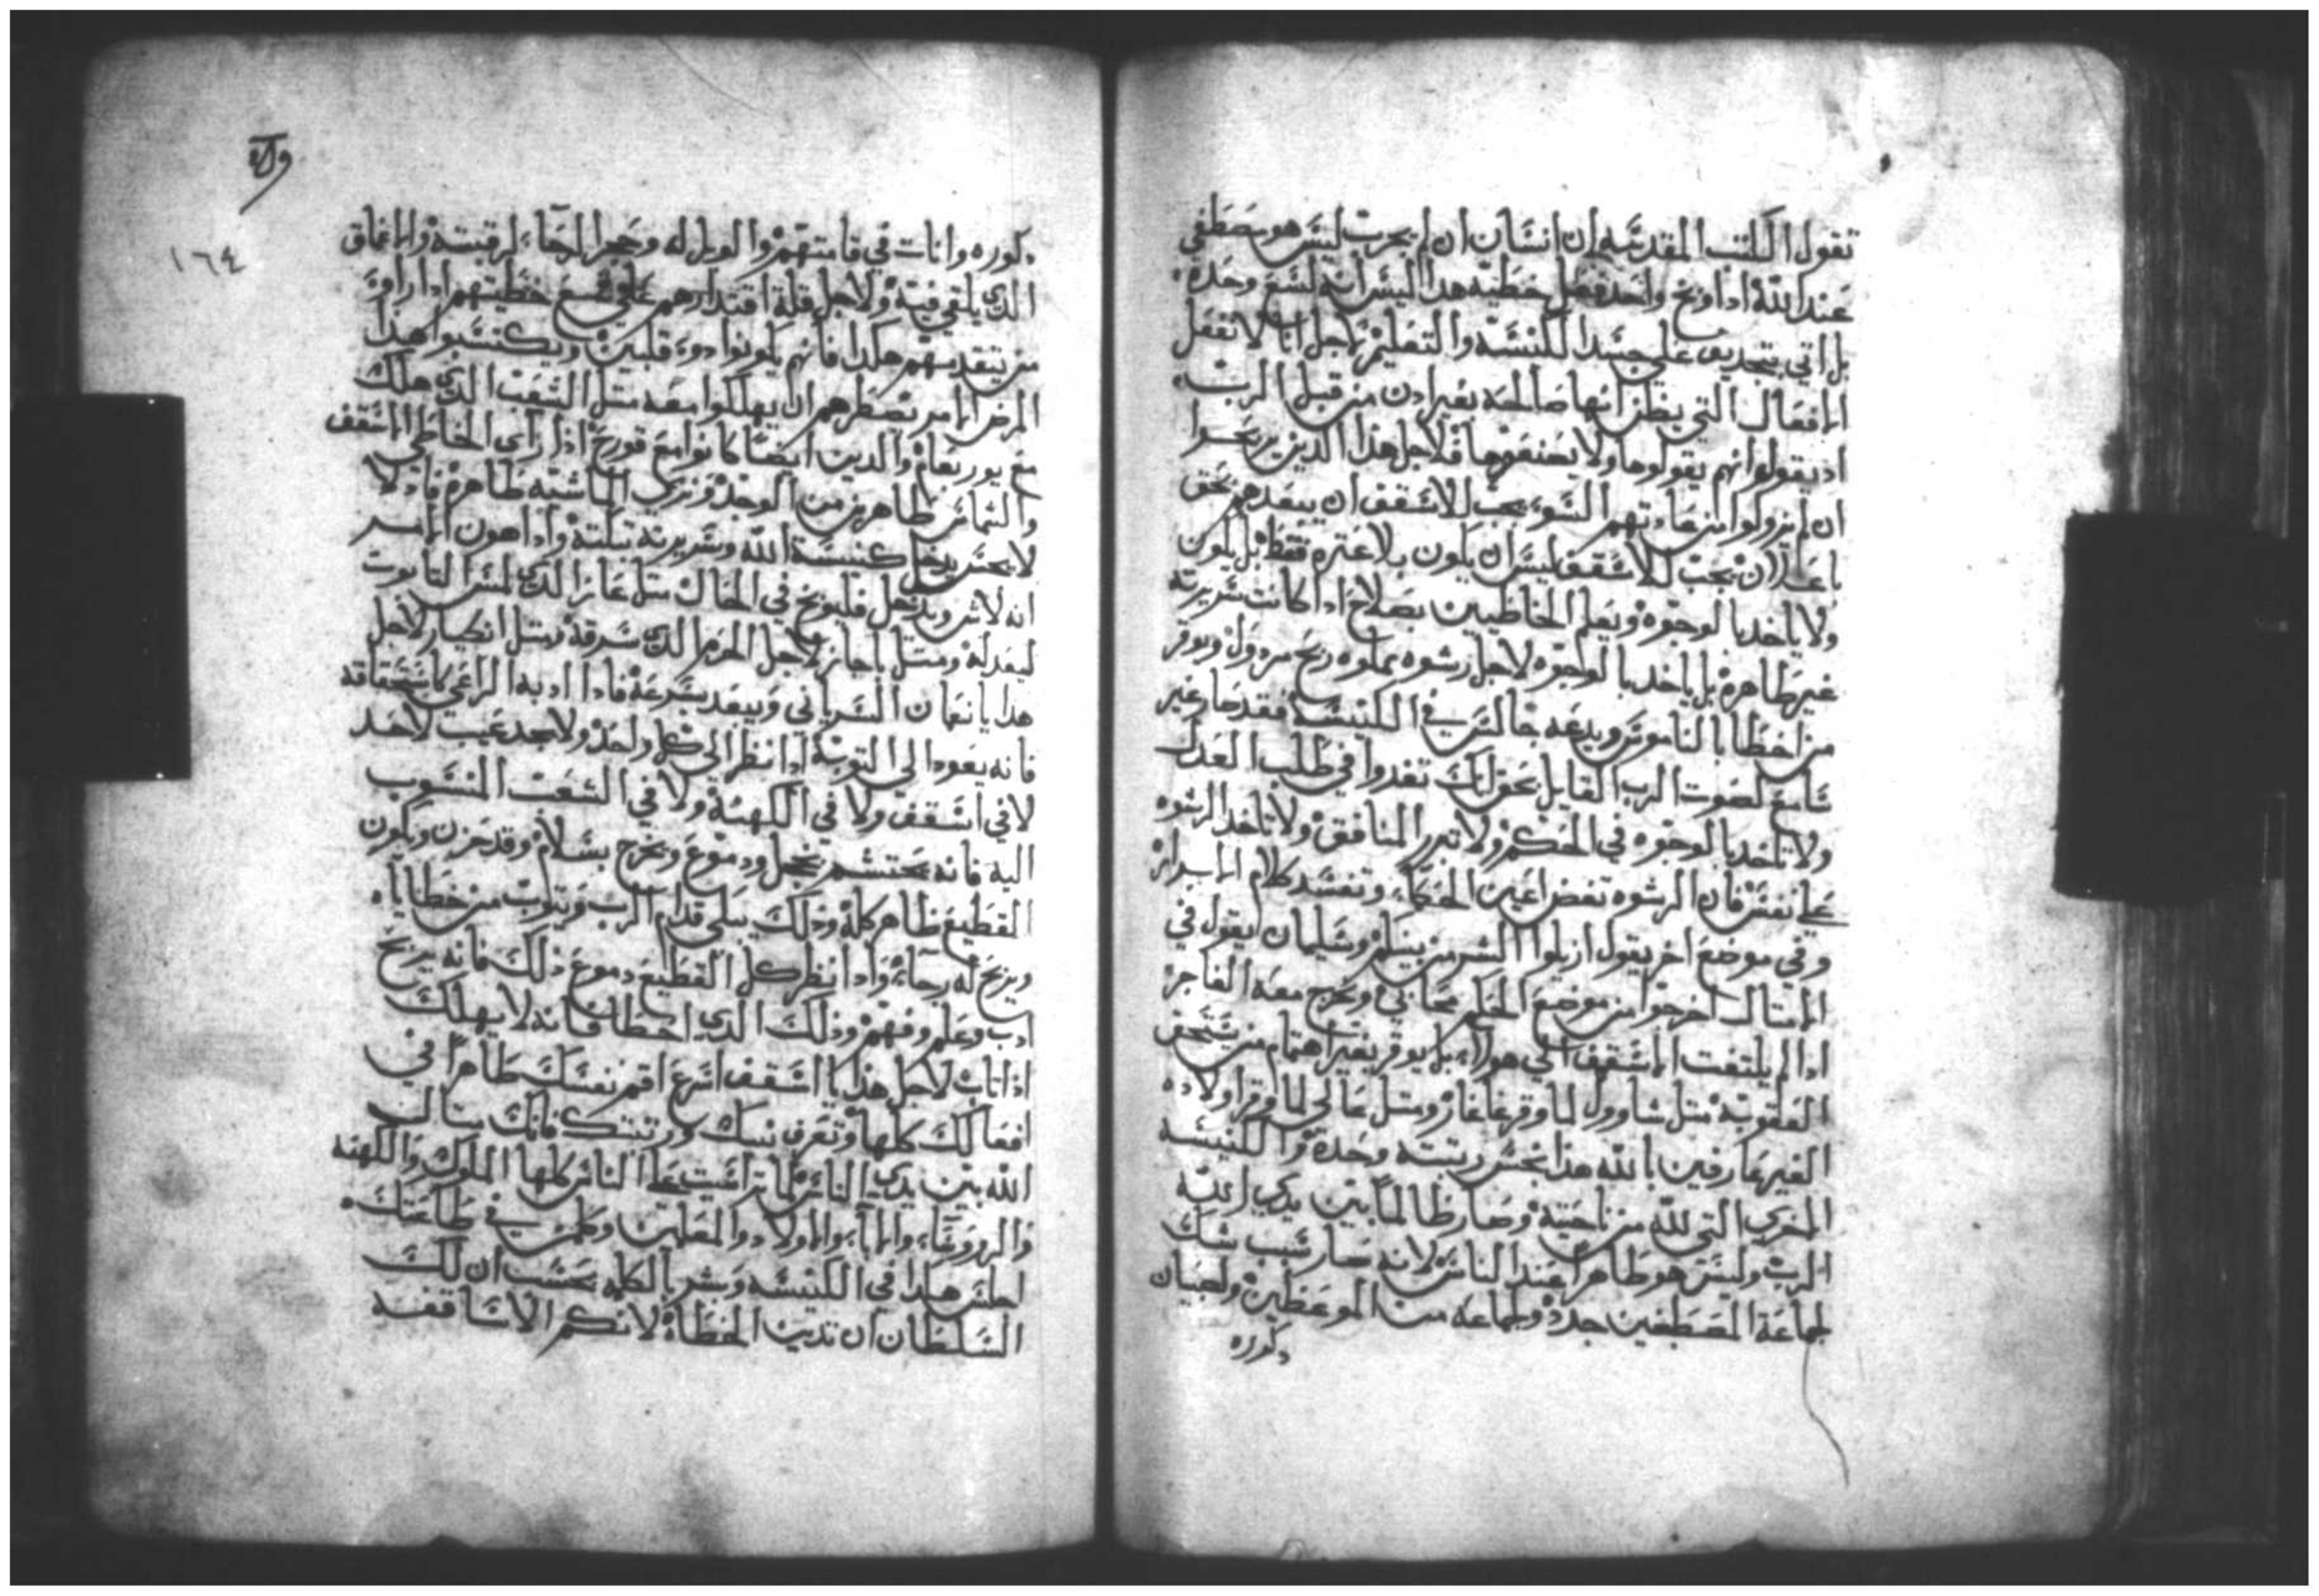 تقول الكتب المقدسه ان انسان ان لم يجرب ليس هو مصطفى
عند الله اداوبخ واحد فعل خطيه هدا ليس انه لشع وحده
بل اتي بتجديف على جسد الكنيسه والتعليم لاجل انا لا نفعل
الافعال التي يظن انها صالحه بغير ادن من قبل الرب
اد يقولوا انهم يقولوها ولا يصنعوها فلاجل هذا الذين يريدوا
ان لم يزولوا من عادتهم السوء يجب للاسقف ان يبعدهم بحق
باعدلان يجب للاسقف ليس ان يكون بلا عثره فقط بل يكون
ولا ياخد بالوجوه ويعلم الخاطيين بصلاح ادا كانت سريرته
غير طاهره بل ياخد بالوجوه لاجل رشوه مملوه ربح مردول ويوقر
من اخطا بالناموس ويدعه جالس في الكنيسه فقد صار غير
سامع لصوت الرب القايل بحق لك تغدوا في طلب العدل
ولا تاخد بالوجوه في الحكم ولا تبرر المنافق ولا تاخد الرشوه
على نفس فان الرشوه تغض اعين الحكماء وتفسد كلام الابرار
وفي موضع اخر يقول ازيلوا الشر من بينكم وسليمان يقول في
الامثال اخرجوا من موضع الحكم محابي ويخرج معه الفاجر
ادا لم يلتفت الاسقف الى هولاء بل يوقر بغير اهتمام من يستحق
العقوبه مثل شاوول لما وقر غاغاز ومثل عالي لما وقر اولاده
الغير عارفين بالله هذا نجس رتبته وحده والكنيسه
الاخرى التي لله من ناحيته وصار ظالماً بين يدي الله
الرب وليس هو طاهر عند الناس لانه صار سبب شك
لجماعة المصطفين جدد ولجماعه من الموعظين ولصبيان
دكوره
١٦٤
دكوره وانات في قامتهم والويل له وحجر الرحاء لرقبته والاعماق
الدي يلقى فيه ولاجل قلة اقتدارهم على قمع خطيتهم ادا راوء
من يتقدمهم هكدا فانهم يكونوا دوء قلبين ويكتسبوا هدا
المرض الامر تضطرهم ان يهلكوا معه مثل الشعب الذي هلك
مع يوربعام والدين ايضا كانوا مع قورح اذا راى الخاطي الاسقف
والشماس طاهرين من الوجد ونزى الماشيه طاهره فاد لا
لا يجسر يدخل كنيسة الله وسريرته تبكته وادا هون الامر
انه لاش ويدخل فليوبخ في الحال مثل عازا لدي لمس التابوت
ليعدله ومثل اجار لاجل الحرم الدي سرقه ومثل انكيار لاجل
هدايا نعمان السرياني ويبعد بسرعه فادا ادبه الراعي كاستحقاقه
فانه يعود الى التوبه ادا نظر الى كل واحد ولا يجد عيب لاحد
لا في اسقف ولا في الكهنة ولا في الشعب المنسوب
اليه فانه يحتشم بخجل ودموع ويخرج بسلام وقد حزن ويكون
القطيع طاهر كله وذلك يبكي قدام الرب ويتوب من خطاياه
ويربح له رجاء وادا نظر كل القطيع دموع ذلك فانه يربح
ادب وعلم وفهم وذلك الذي اخطا فانه لا يهلك
اذا تاب لاجل هذا يا اسقف اسرع اقم نفسك طاهراً في
افعالك كلها وتعرف نيتك ورتبتك فانك مثال
الله بين يدي الناس لما تراست على الناس كلها الملوك والكهنه
والروؤساء والاباء والاولاد والمعلمين وكلمن في طاعتك
اجلس هكدا في الكنيسه وبشر بالكلمه بحسب ان لك
السلطان ان تدين الخطاة لانكم الاساقفه